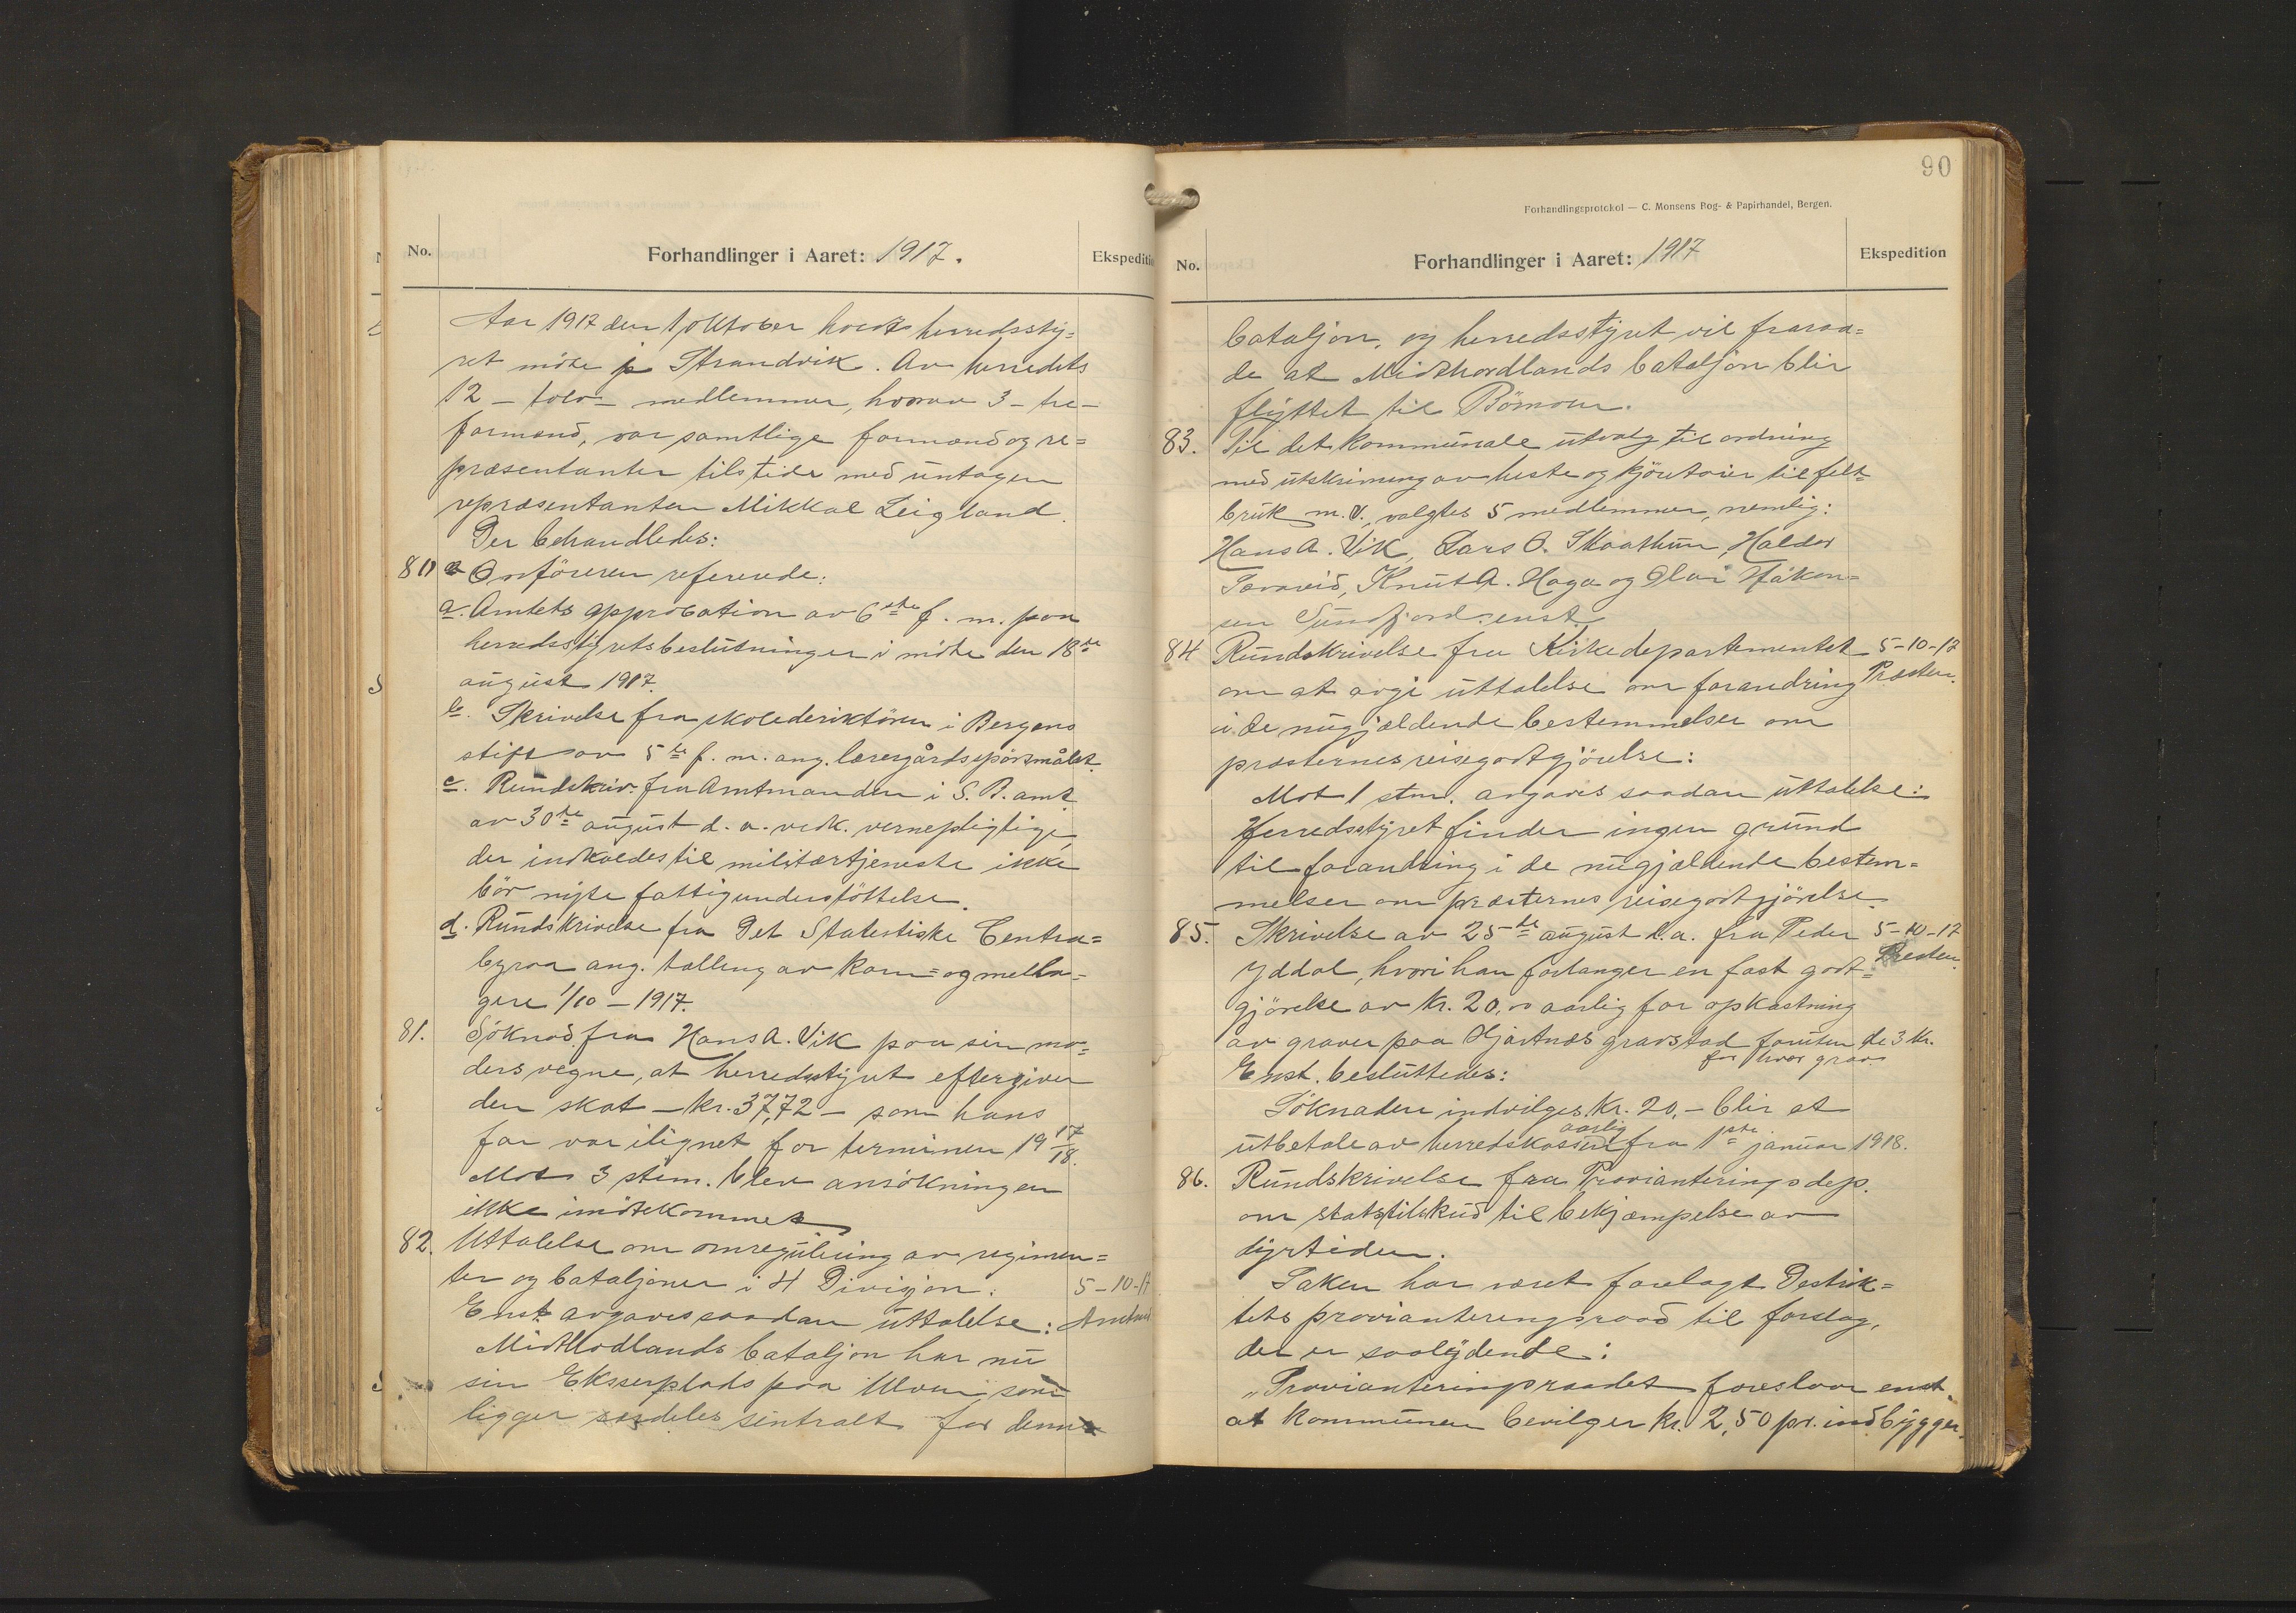 No.
Forhandlinger i Aaret: 1917.
Ekspediti
Aar 1917 den 1 oktober holdt herredssty=
ret møte i Strandvik. Av herredets
12 – tolv – medlemmer, hvorav 3 – tre –
formænd, var samtlige formænd og re=
præsentanter tilstede med untagen
repræsentanten Mikkal Leigland.
Der behandledes:
80 Ordføreren refererede:
a. Amtets approbation av 6te f. m. paa
herredsstyrets beslutninger i møte den 18de
august 1917.
b. Skrivelse fra skolederiktøren i Bergens
stift av 5te f. m. ang. lærergårdsspörsmålet.
c. Rundskriv. fra Amtmanden i S. B. amt
av 30te august d. a. vedk. vernepligtige,
der indkaldes til militærtjeneste ikke
bör nyte fattigunderstöttelse.
d. Rundskrivelse fra Det Statestiske Centra=
byraa ang. tælling av korn= og mella=
gere 1/10 – 1917.
81. Søknad fra Hans A. Vik paa sin mo=
ders vegne, at herredsstyret eftergiver
den skat – kr. 37,72 – som hans
far var ilignet for terminen 19 17/18.
Mot 3 stem. blev ansökningen
ikke imötekommet
82. Uttalelse om omregulering av regimen=
ter og bataljoner i 4 Divisjon:
5-10-17
Enst. avgaves saadan uttalelse:
Midthordlands bataljon har nu
sin Ekserplads paa Ulven, som
ligger særdeles sintralt for denne
90
Forhandlingsprotokol — C. Monsens Bog- & Papirhandel, Bergen.
No.
Forhandlinger i Aaret: 1917
Ekspedition
bataljon, og herredsstyret vil fraraa=
de at Midthordlands bataljon blir
flyttet til Bömoen.
83. Til det kommunale utvalg til ordning
med utskrivning av heste og kjöretöier til felt=
bruk m. v., valgtes 5 medlemmer, nemlig:
Hans A. Vik, Lars O. Skaathun, Haldor
Tveravid, Knut A. Haga og Olai Håkon=
sen Sundfjord – enst.
84 Rundskrivelse fra Kirkedepartementet
5-10-17
om at avgi uttalelse om forandring
Presten.
i de nugjældende bestemmelser om
præsternes reisegodtgjörelse:
Mot 1 stm. avgaves saadan uttalelse:
Herredsstyret finder ingen grund
til forandring i de nugjældende bestem=
melser om præsternes reisegodtgjörelse.
85. Skrivelse av 25de august d. a. fra Peder
5-10-17
Yddal, hvori han forlanger en fast godt=
Presten.
gjörelse av kr. 20,00 aarlig for opkastning
av graver paa Hjartnæs gravstad foruten de 3 kr.
for hver grav.
Enst. besluttedes:
Söknaden indvilges. Kr. 20,– blir at
utbetale av herredskassen aarlig fra 1ste januar 1918.
86. Rundskrivelse fra Provianteringsdep.
om statstilskud til bekjæmpelse av
dyrtiden.
Saken har været forelagt Destrik=
tets provianteringsraad til forslag,
der er saalydende:
„Provianteringsraadet foreslaar enst.
at kommunen bevilger kr. 2,50 pr. indbygger.